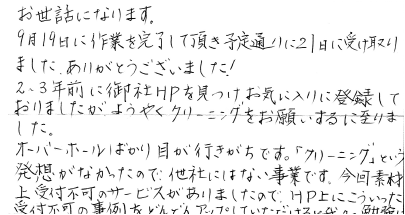 お世話になります。
9月19日に作業を完了して頂き予定通りに21日に受け取り
ました。ありがとうございました!
2、3年前に御社HPを見つけお気に入りに登録して
おりましたがようやくクリーニングをお願いするに至りま
した。
オーバーホールばかり目が行きがちです。「クリーニング」という
発想がなかったので、他社にはない事業です。今回素材
上受付不可のサービスがありましたので、HP上にこういった
受付不可の事例をどんどんアップしていただけると